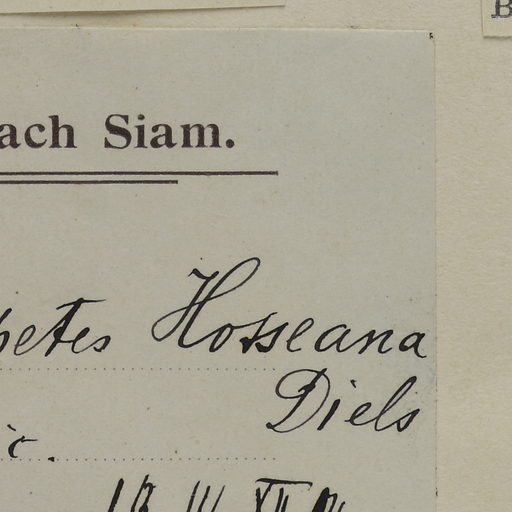 B
ach Siam.
petes Hosseana
Diels
ic.